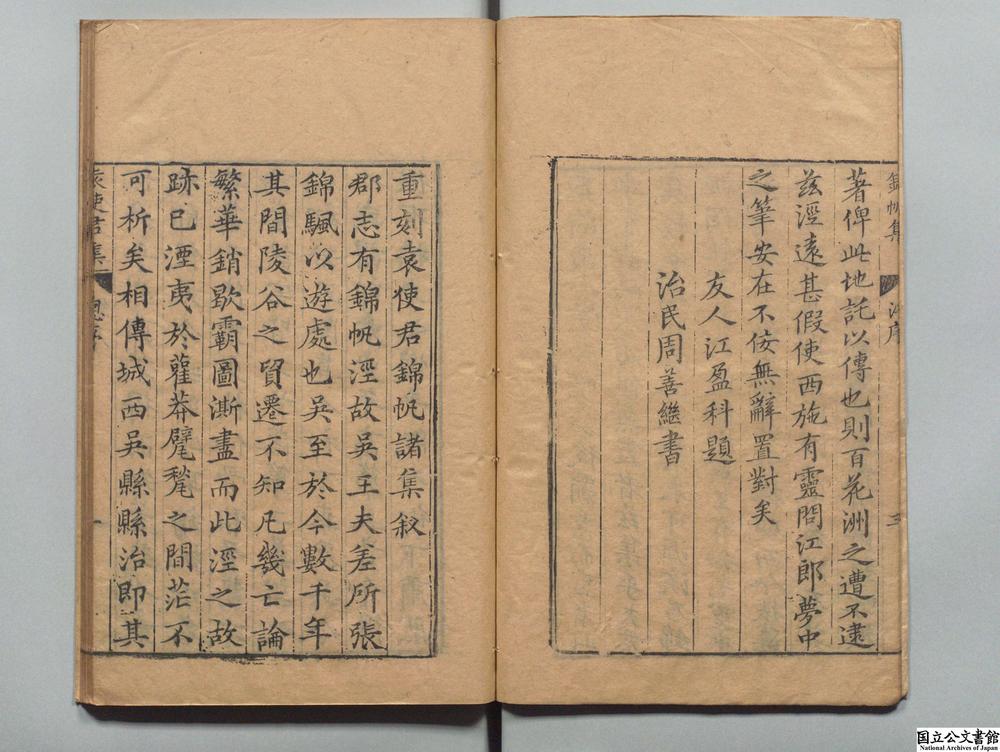 錦帆集
江序
三
著俾此地託以傳也則百花洲之遭不逮
茲涇遠甚假使西施有靈問江郎夢中
之筆安在不佞無辭置對矣
友人江盈科題
治民周善繼書
重刻袁使君錦帆諸集敘
郡志有錦帆涇故吳王夫差所張
錦颿以遊處也吳至於今數千年
其間陵谷之貿遷不知凡幾亡論
繁華銷歇霸圖澌盡而此涇之故
跡已湮夷於雚莽甓甃之間茫不
可析矣相傳城西吳縣縣治即其
袁使君集
總序
一
国立公文書館
National Archives of Japan